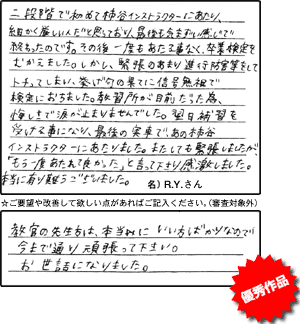 二段階で初めて柿谷インストラクターにあたり、
細かく厳しい人だと思っており、最後も気まずい感じで
終ったのでその後一度もあたる事なく、卒業検定を
むかえました。しかし、緊張のあまり進行妨害等をして
トチってしまい、挙げ句の果てに信号無視で
検定におちました。教習所が目前だった為、
悔しさで涙が止まりませんでした。翌日補習を
受ける事になり、最後の実車で、あの柿谷
インストラクターにあたりました。またしても緊張しましたが、
「もう一度あたれて良かった」と言って下さり感激しました。
本当に有り難うございました。
名) R.Y.さん
☆ご要望や改善して欲しい点があればご記入ください。(審査対象外)
教官の先生方は、本当にいい方ばかりなので
今まで通り頑張って下さい。
お世話になりました。
優秀作品